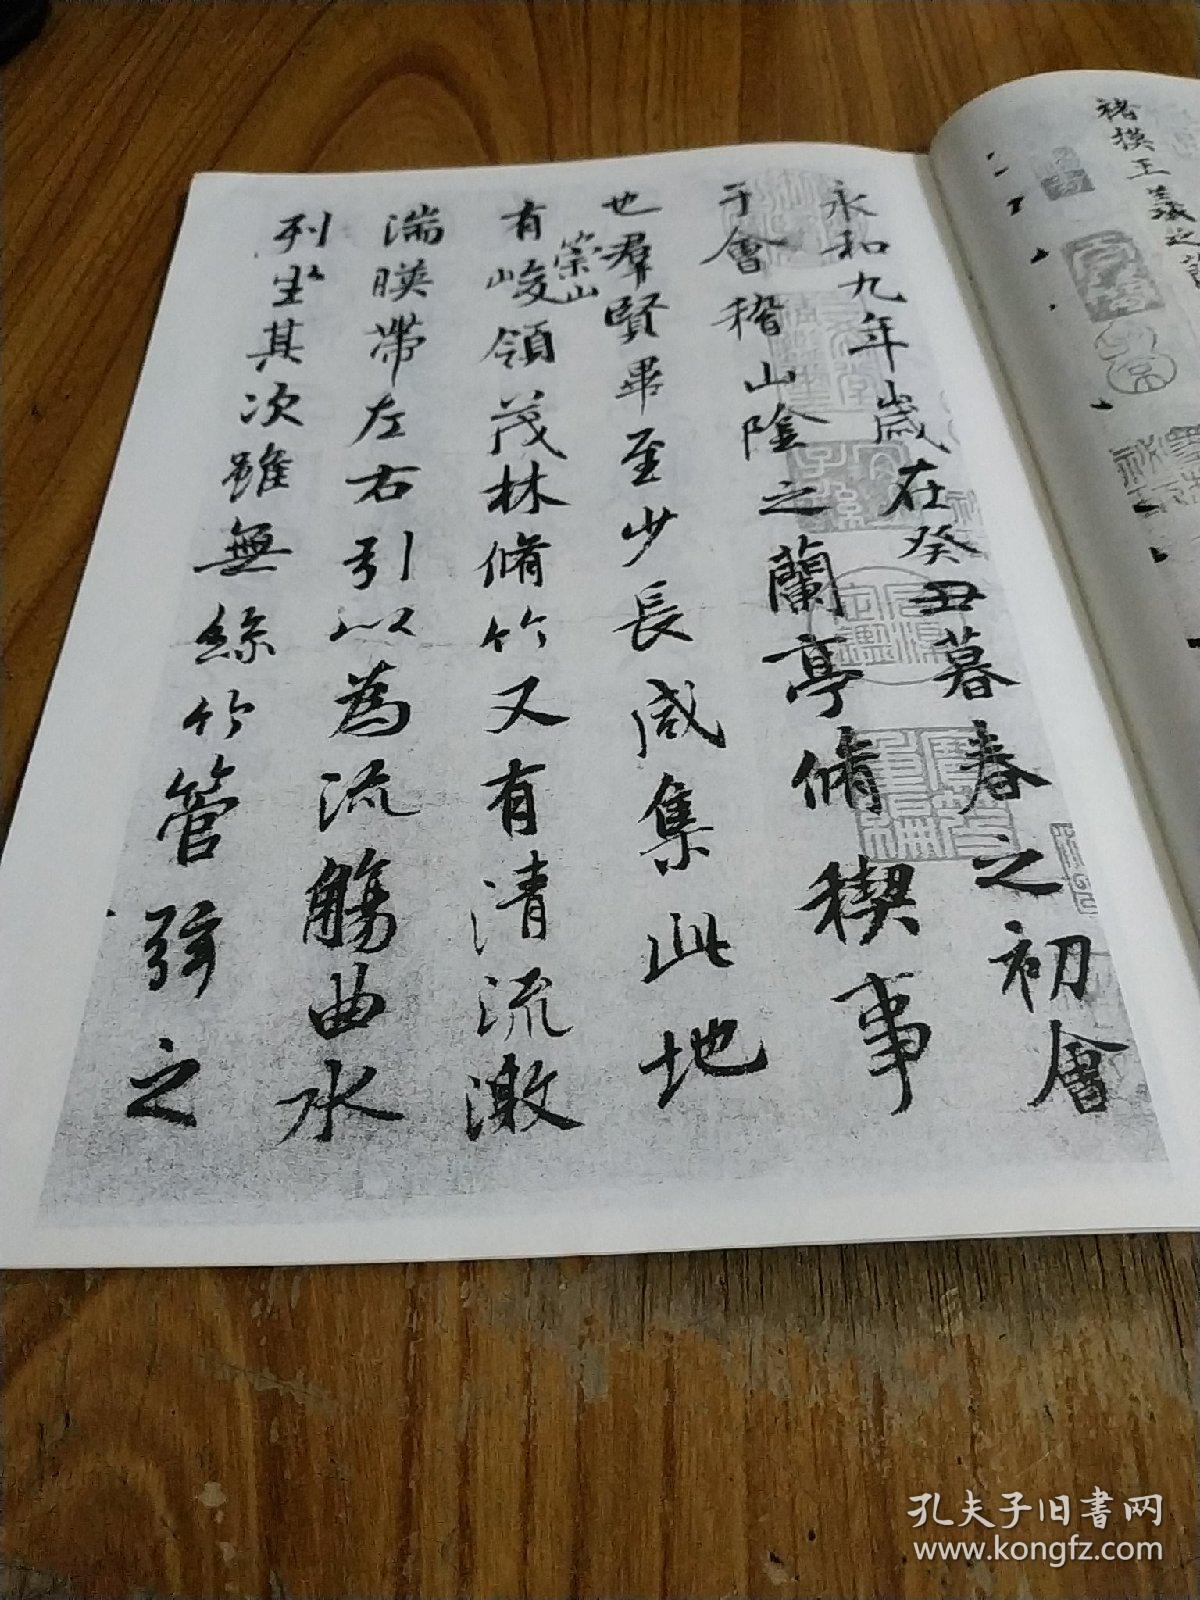 褚摸王羲之
永和九年歲在癸丑暮春之初會
于會稽山陰之蘭亭脩稧事
也群賢畢至少長咸集此地
有崇山峻領茂林脩竹又有清流激
湍暎帶左右引以為流觴曲水
列坐其次雖無絲竹管弦之
孔夫子旧书网
www.kongfz.com